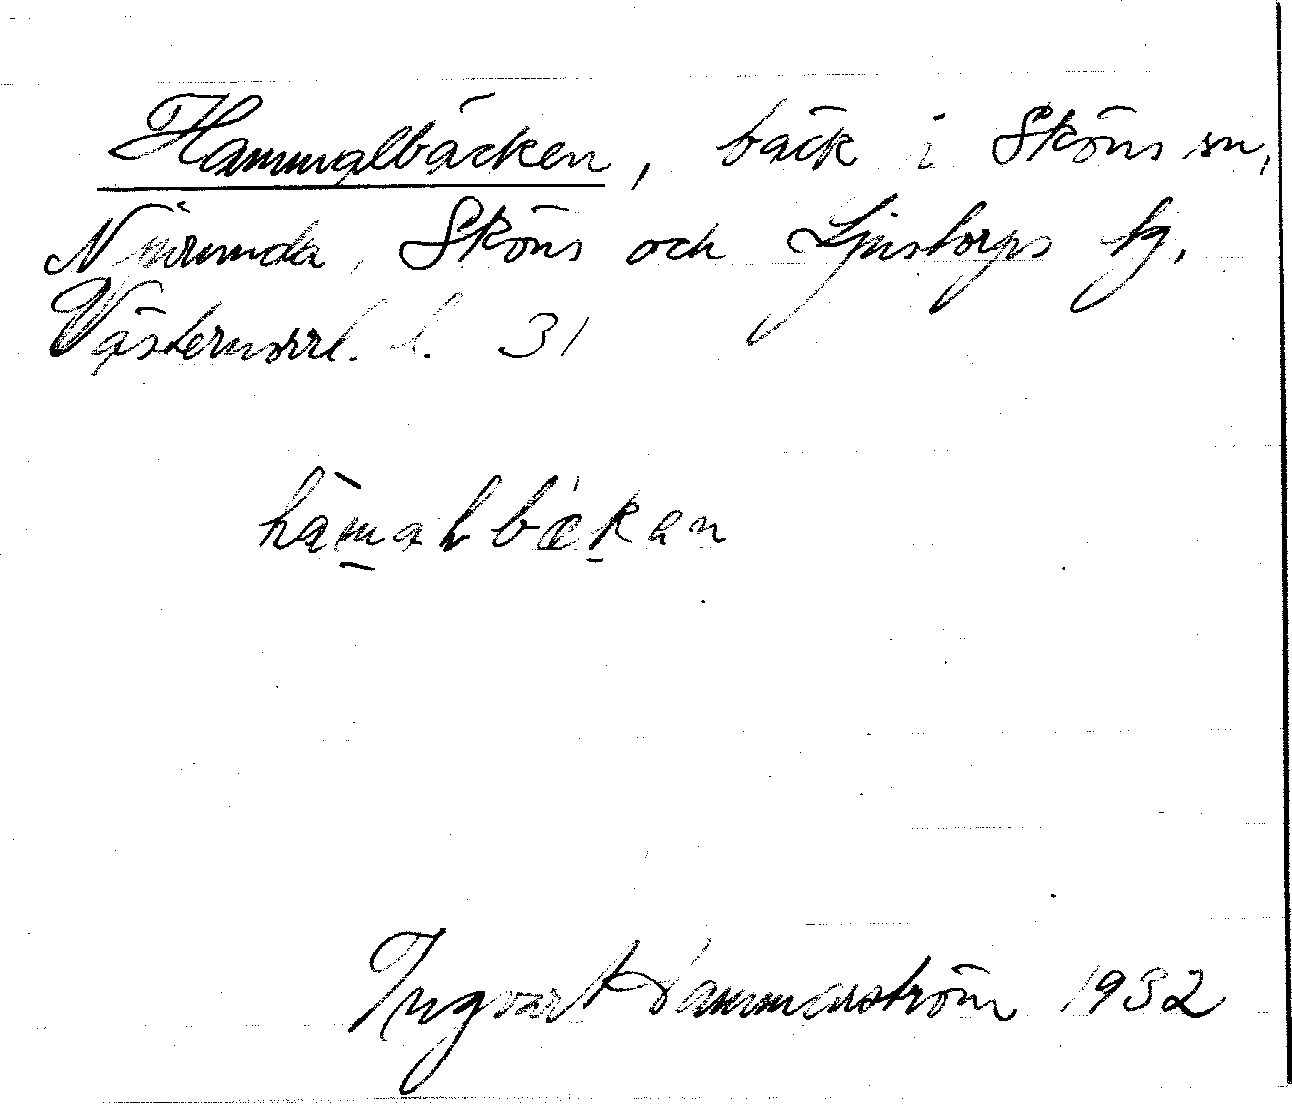 Hammalbäcken, bäck i Sköns sn,
Njurunda, Sköns och Ljustorps tg,
Västernorrl. l. 31
hàmalbækan
Ingvar Hammarström 1932